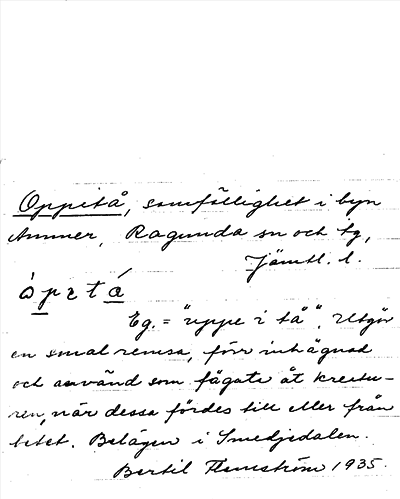 Oppitå, samfällighet i byn
Ammer, Ragunda sn och tg,
Jämtl. l.
òpztá
Eg. = "uppe i tå". Utgör
en smal remsa, förr inhägnad
och använd som fägata åt kreatu-
ren, när dessa fördes till eller från
betet. Belägen i Smedjedalen.
Bertil Flemström 1935.